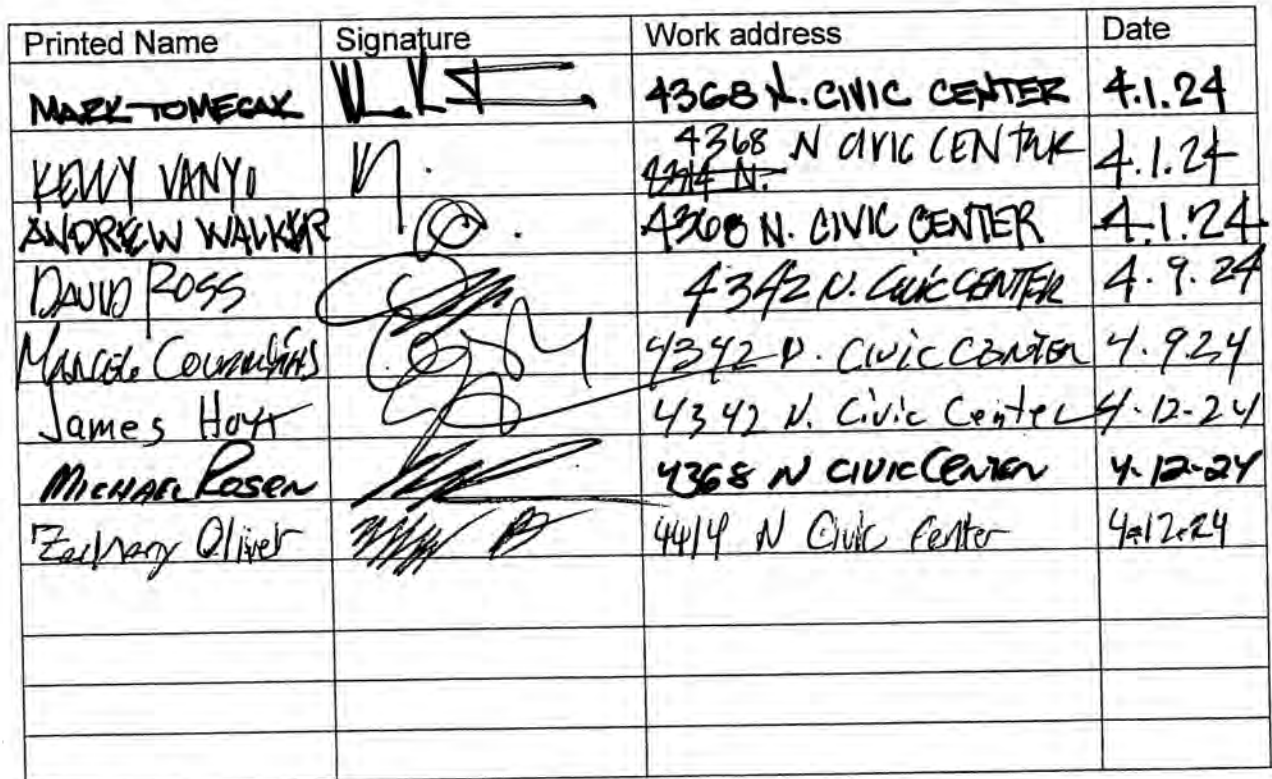 Printed Name Signature Work address Date
MARK TOMECAK 4368 N. CIVIC CENTER 4.1.24
KELLY VANYO 4368 N CIVIC CENTER 4.1.24
ANDREW WALKER 4368 N. CIVIC CENTER 4.1.24
DAVID ROSS 4342 N. CIVIC CENTER 4.9.24
4342 N. CIVIC CENTER 4.9.24
James Hoyt 4342 N. Civic Center 4-12-24
MICHAEL ROSEN 4368 N CIVIC CENTER 4-12-24
Zachary Oliver 4414 N Civic Center 4-12-24